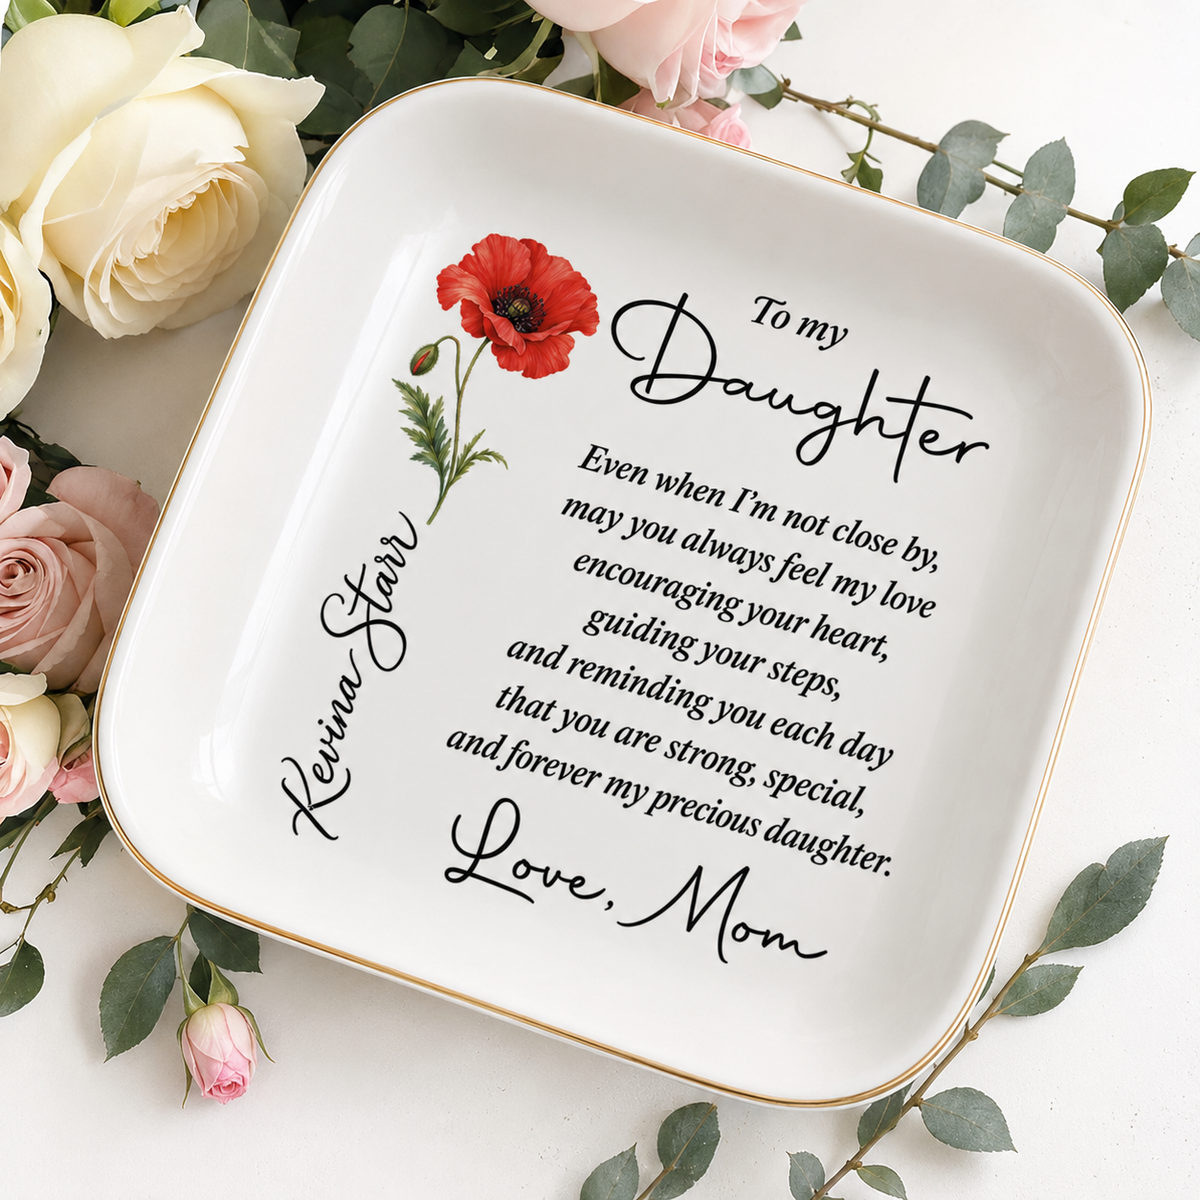 To my
Daughter
Even when I'm not close by,
may you always feel my love
encouraging your heart,
guiding your steps,
and reminding you each day
that you are strong, special,
and forever my precious daughter.
Love, Mom
Kevina Starr